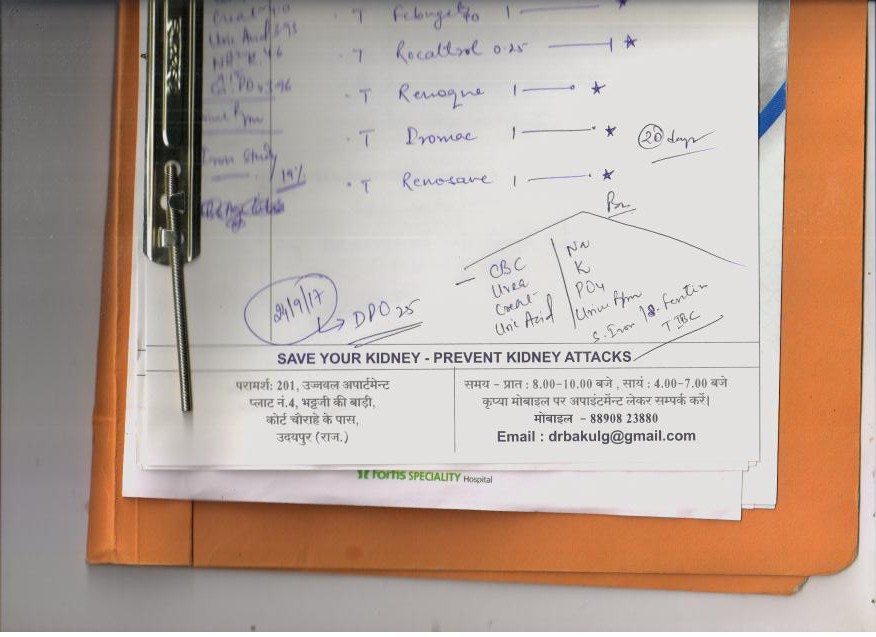 Creat - 4.0
Uric Acid 3.93
T Febuget 40 1
T Rocaltrol 0.25
PO4 3.96
T Renogue 1
T Dromac 1
20 days
Iron Study
19%
T Renosave 1
CBC
Urea
Creat
Uric Acid
Na
K
PO4
Urine R/m
S. Iron / S. Ferritin
TIBC
24/9/17
DPO 25
SAVE YOUR KIDNEY - PREVENT KIDNEY ATTACKS
परामर्श: 201, उज्जवल अपार्टमेन्ट
प्लाट नं.4, भट्टजी की बाड़ी,
कोर्ट चौराहे के पास,
उदयपुर (राज.)
समय - प्रात : 8.00-10.00 बजे , सायं : 4.00-7.00 बजे
कृप्या मोबाइल पर अपाइंटमेंन्ट लेकर सम्पर्क करें।
मोबाइल - 88908 23880
Email : drbakulg@gmail.com
Fortis SPECIALITY Hospital